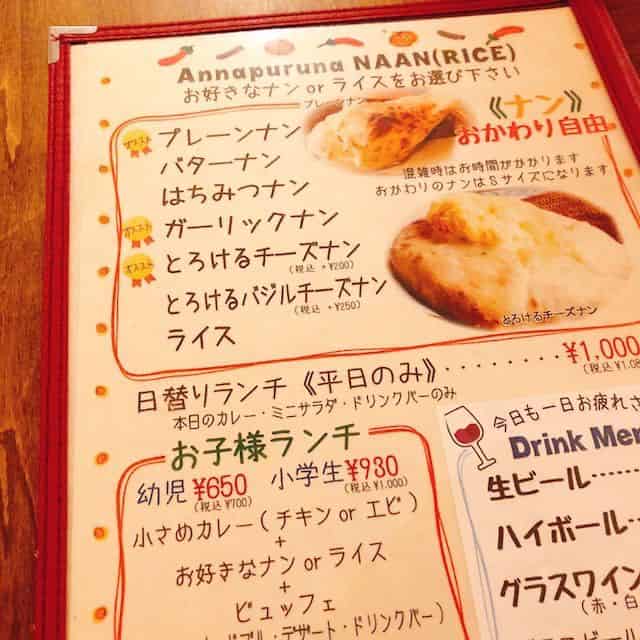 Annapuruna NAAN(RICE)
お好きなナン or ライスをお選び下さい
プレーンナン
《ナン》
おかわり自由
混雑時はお時間がかかります
おかわりのナンはSサイズになります
オススメ プレーンナン
バターナン
はちみつナン
オススメ ガーリックナン
オススメ とろけるチーズナン
(税込 +¥200)
とろけるバジルチーズナン
(税込 +¥250)
ライス
とろけるチーズナン
日替りランチ《平日のみ》・・・・・・・・¥1,000
(税込¥1,08
本日のカレー・ミニサラダ・ドリンクバーのみ
お子様ランチ
幼児 ¥650 小学生 ¥930
(税込¥700) (税込¥1,000)
小さめカレー(チキン or エビ)
+
お好きなナン or ライス
+
ビュッフェ
デザート・ドリンクバー)
今日も一日お疲れさ
Drink Men
生ビール……
ハイボール…
グラスワイン
(赤・白